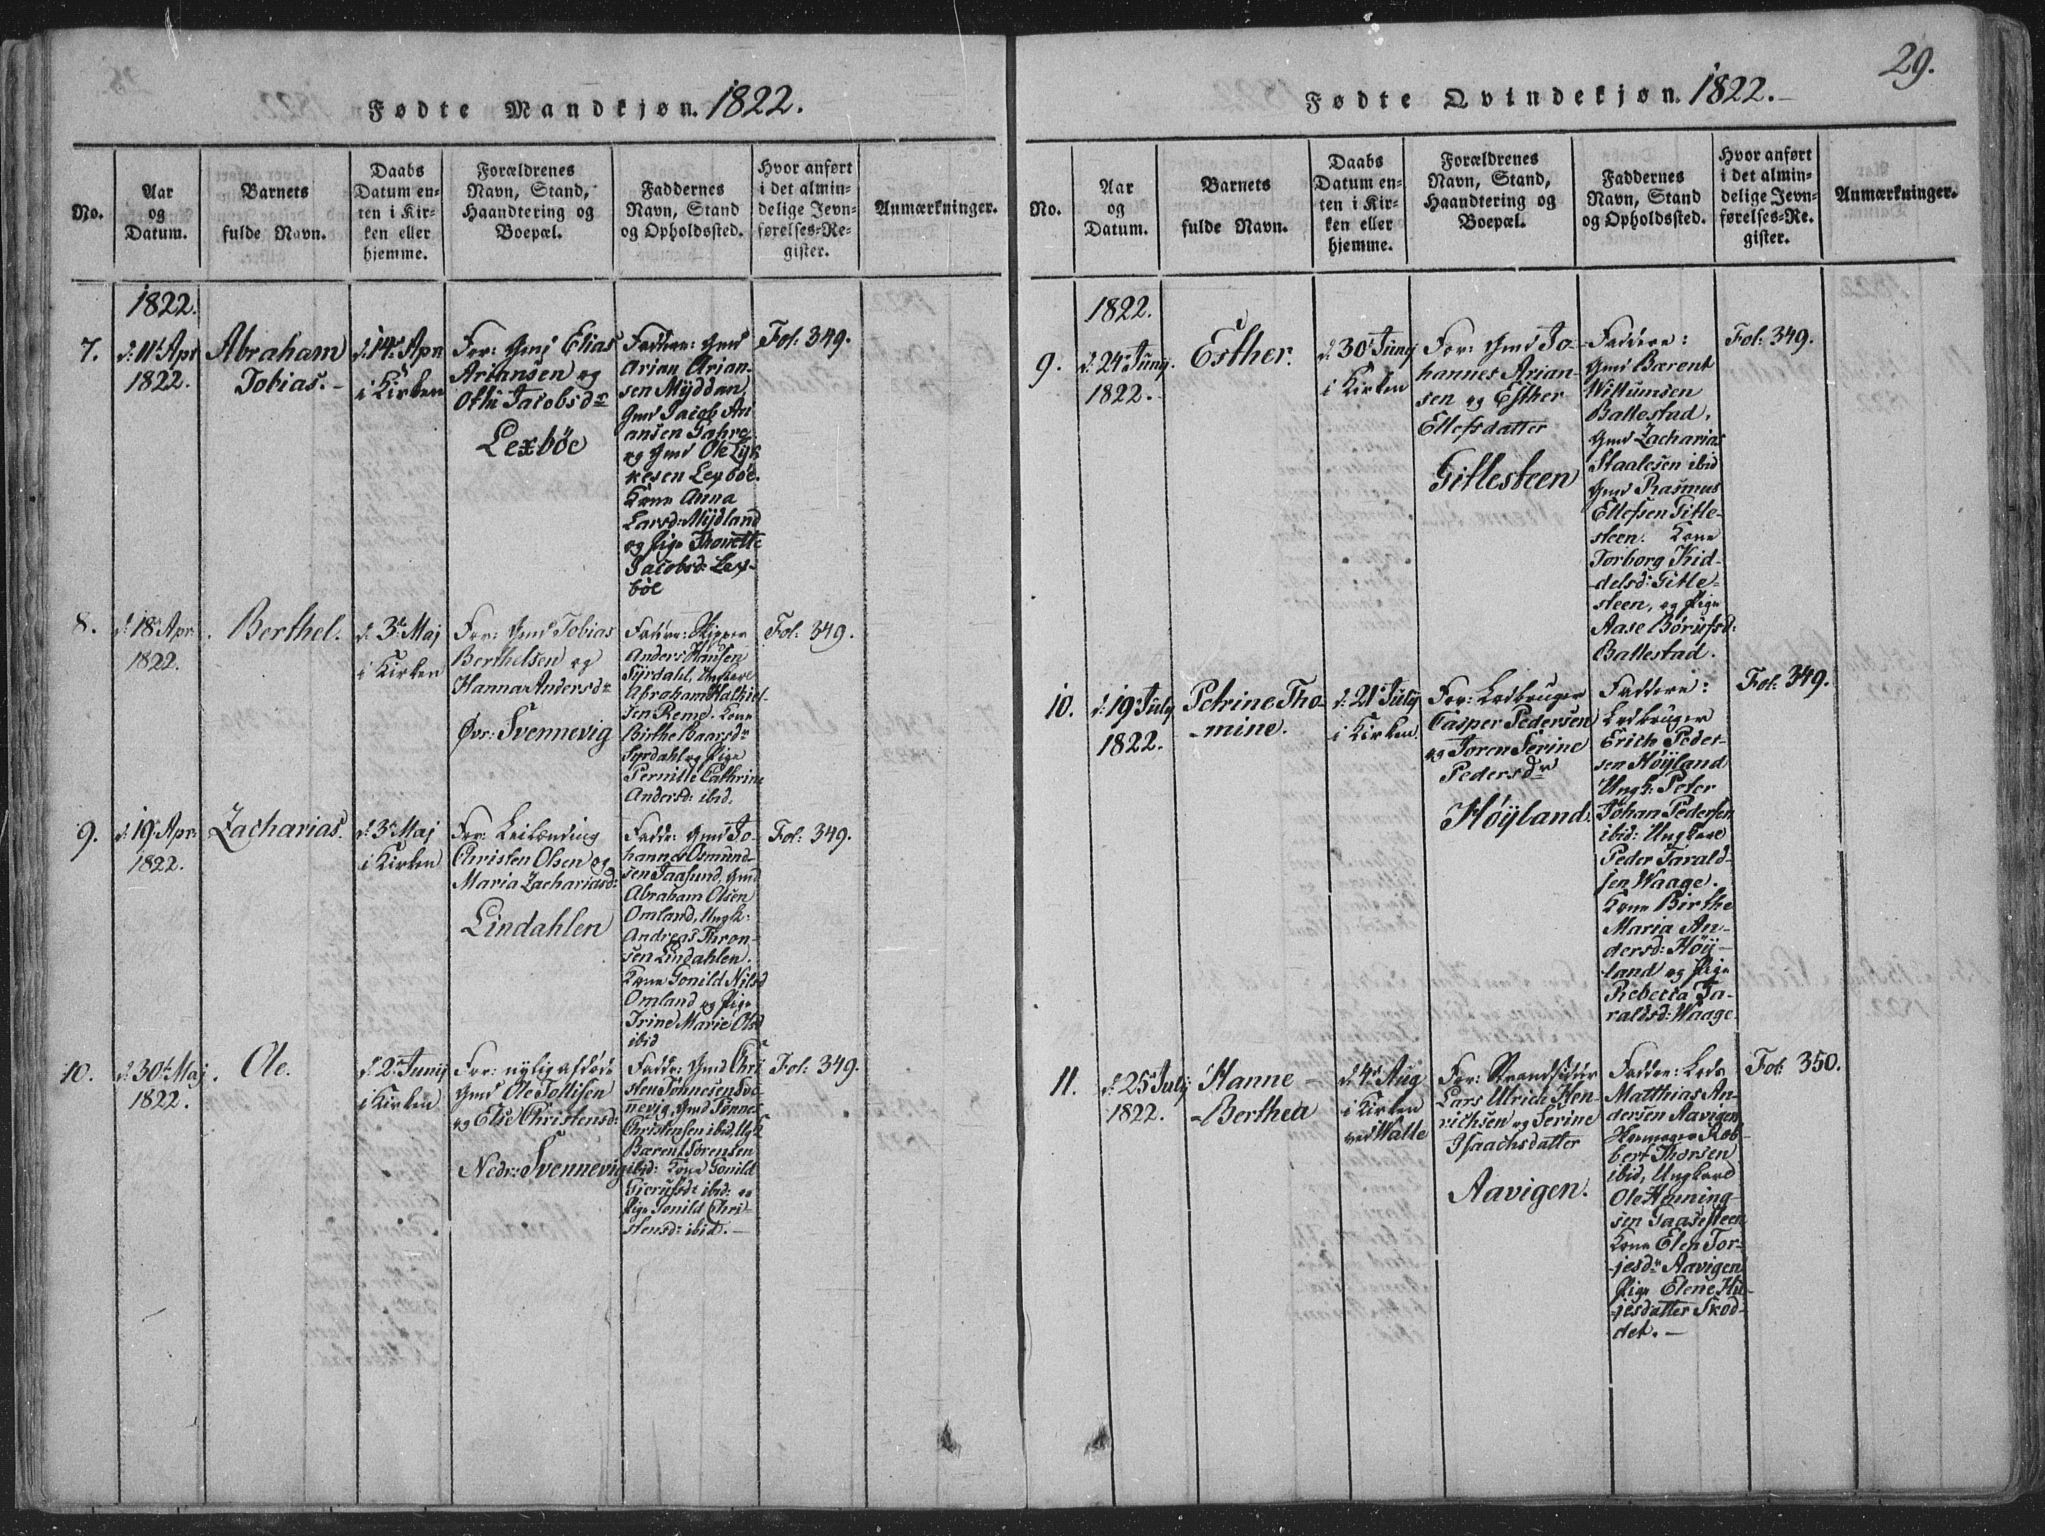 Fødte Mandkjøn. 1822.
No.
Aar
og
Datum.
Barnets
fulde Navn.
Daabs
Datum en-
ten i Kir-
ken eller
hjemme.
Forældrenes
Navn, Stand,
Haandtering og
Boepæl.
Faddernes
Navn, Stand
og Opholdssted.
Hvor anført
i det almin-
delige Jevn-
førelses-Re-
gister.
Anmærkninger.
1822.
7.
d: 11t Apr
1822.
Abraham
Tobias. –
d: 14de Apr
i Kirken
For: Gmd Elias
Ariansen og
Othi Jacobsdr
Lexbøe
Faddere: Gmd
Arian Arian-
sen Myddan,
Gmd Jacob An
ansen Gahre
og Gmd Ole
kesen Lexbøe.
Kone Anna
Larsd: Mydland
og Pige Thonette
Jacobsd: Lex-
bøe
Fol: 349.
8.
d: 18de Apr.
1822.
Berthel.
d. 3de Maj
i Kirken
For: Gmd Tobias
Berthelsen og
Hanna Andersdr
Øvr: Svennevig
Faddre: Skipper
Anders Hansen
Syrdahl, Ungkarl
Abraham Halkiel-
sen Reme. Kone
Birthe Baarsdr
Syrdahl og Pige
Pernille Cathrine
Andersd: ibid.
Fol: 349.
9.
d: 19de Apr.
1822.
Zacharias.
d: 3de Maj
i Kirken
For: Leilænding
Christen Olsen og
Maria Zachariasd:
Lindahlen
Fadd: Gmd Jo-
hannes Osmund-
sen Jaasund, Gmd
Abraham Olsen
Omland, Ungk:
Andreas Thron-
sen Lindahlen.
Kone Gonild Nilsd
Omland og Pige
Trine Marie Olsd
ibid
Fol: 349.
10.
d: 30te Maj
1822.
Ole.
d 2. Junij
i Kirken
For: nylig afdøde
Gmd Ole Tollisen
og Else Christensd:
Nedr: Svennevig
Fadd: Gmd Chri
sten Tønnesen Sve
nevig, Gmd Tønnes
Christensen ibid, Ugk
Bærent Sørensen
ibid: Kone Gonild
Gierulfsdt ibid: og
Pige Gonild Chri-
stensd: ibid. –
Fol: 349.
29.
Fødte Qvindekjøn. 1822. –
No.
Aar
og
Datum.
Barnets
fulde Navn.
Daabs
Datum en-
ten i Kir-
ken eller
hjemme.
Forældrenes
Navn, Stand,
Haandtering og
Boepæl.
Faddernes
Navn, Stand
og Opholdssted.
Hvor anført
i det almin-
delige Jevn-
førelses-Re-
gister.
Anmærkninger.
1822.
9.
d: 24de Juny.
1822.
Esther.
d. 30te Juny
i Kirken
For: Gmd Jo-
hannes Arian-
sen og Esther
Ellefsdatter
Gitlesteen
Faddere:
Gmd Bærent
Willumsen
Ballestad,
Gmd Zacharias
Staalesen ibid
Gmd Rasmus
Ellefsen Gitle-
steen. Kone
Torborg Kid-
delsd: Gitle-
steen, og Pige
Aase Børufsd:
Ballestad.
Fol: 349.
10.
d: 19de July
1822.
Petrine Tho-
mine.
d: 21de July
i Kirken
For: Ledbruger
Casper Pedersen
og Joren Serine
Pedersdr
Høyland.
Faddere:
Ledbruger
Erich Peder-
sen Høyland
Ungk: Peter
Johan Pedersen
ibid: Ungkarl
Peder Tarald-
sen Waage.
Kone Birthe
Maria An-
dersd: Høy-
land og Pige
Rebecca Ta-
raldsd: Waage
Fol: 349.
11.
d: 25de July
1822.
Hanne –
-Berthea
d: 4de Aug
i Kirken
ved Walle
For: Strandsitter
Lars Ulrich Hen-
richsen og Serine
Isaachsdatter
Aavigen.
Faddere: Leds
Matthias An-
dersen Aavigen
Rob-
bert Thorsen
ibid, Ungkarl
Ole Heming-
sen Gaasesteen
Kone Elen Tor-
jesdr Aavigen
Pige Elene
jesdatter Skod-
det. –
Fol: 350.